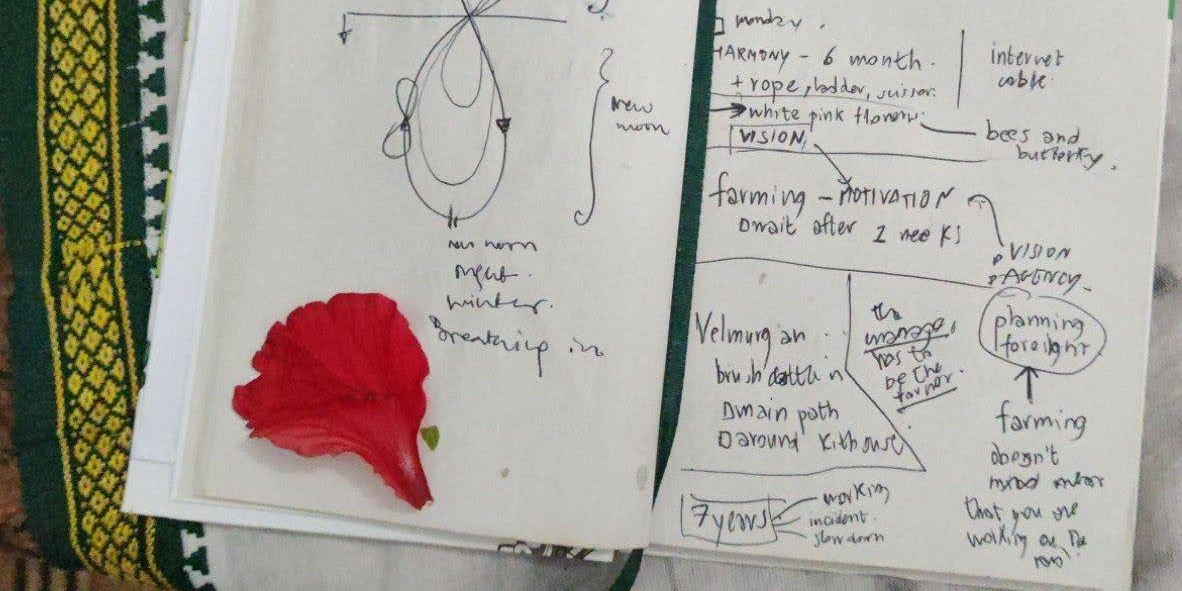 new
moon
night.
winter.
Breathing in
monday.
HARMONY - 6 month.
+ rope, ladder, scissor.
internet
cable.
white pink flower.
bees and
butterfly.
VISION
farming - MOTIVATION
wait after 2 weeks
VISION
AGENCY
Velmurgan :
brush
main path
around Kithouse
the
manager,
has to
be the
farmer.
planning
foresight
farming
doesn't
that you are
working on the
7 years
working
incident.
slow down